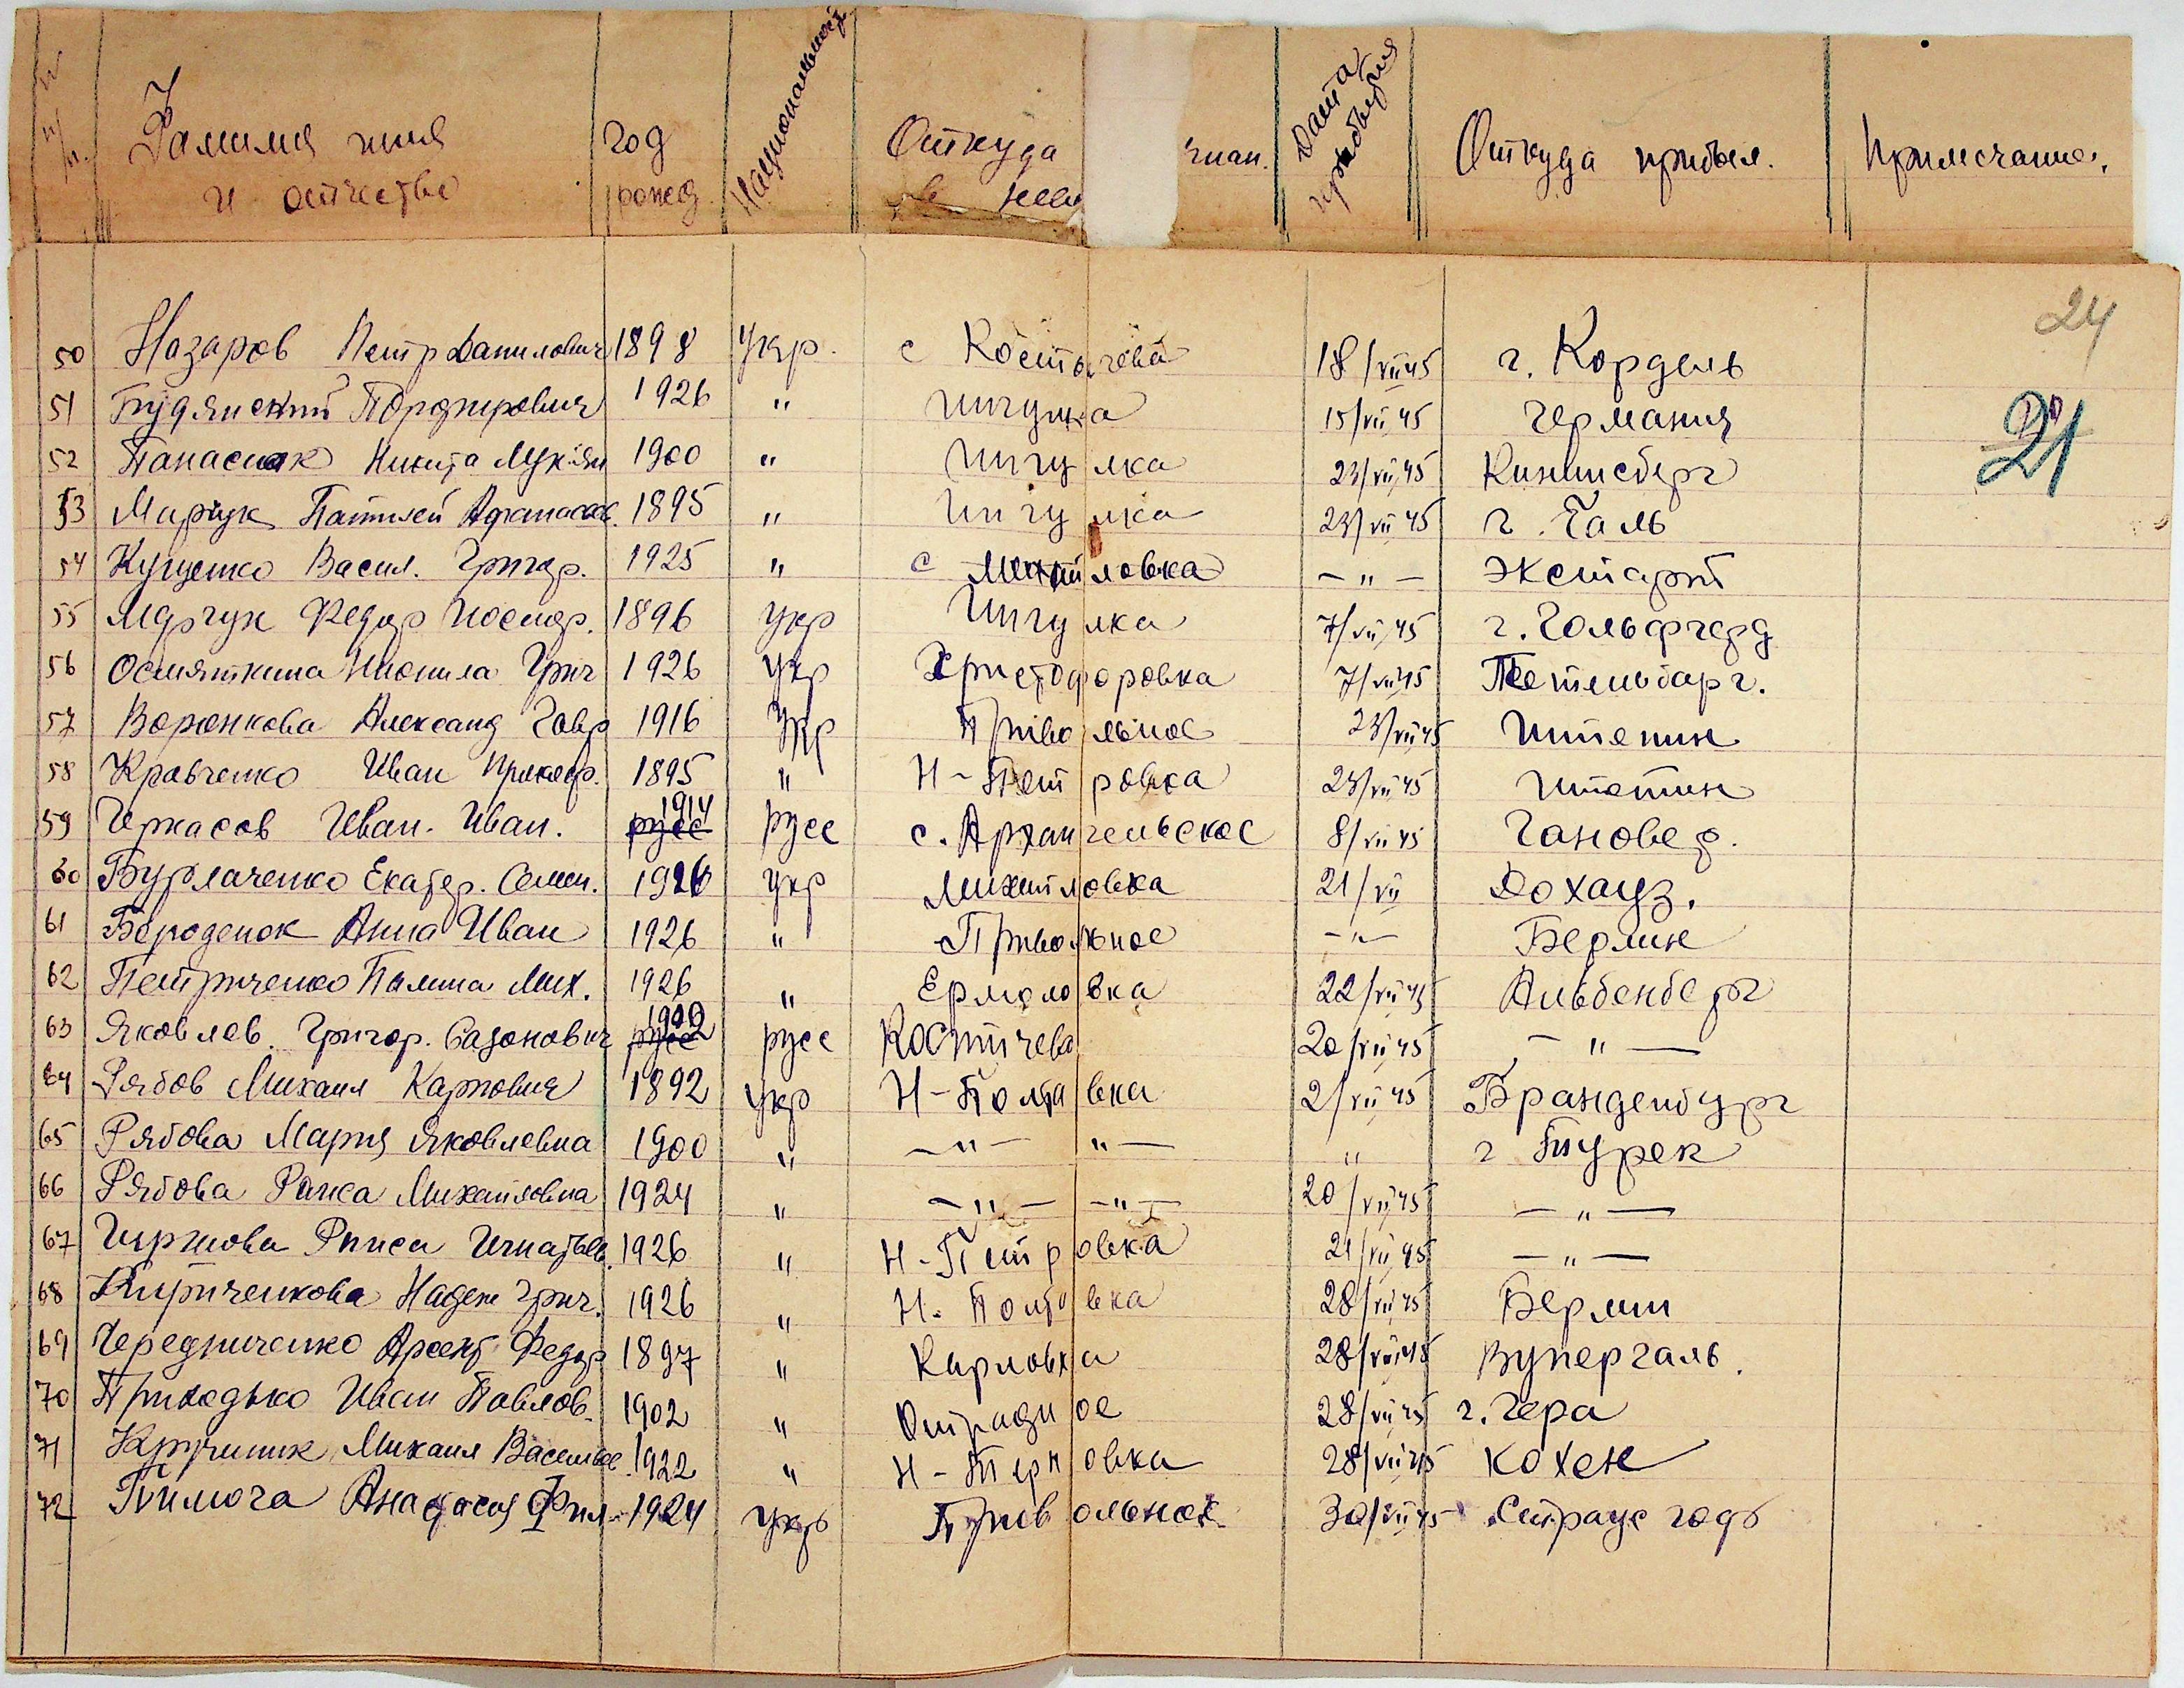 № п/п. Фамилия имя и отчество Год рожд Национальность Откуда чтан. Дата прибытия Откуда прибыл. Примечание.
24
21
50 Назаров Петр Данилович 1898 Укр. с Костычева 18/VII 45 г. Кордель
51 Будянский Порфирович 1926 " Ингулка 15/VII 45 Германия
52 Панасюк Никита Лукян 1900 " Ингулка 23/VII 45 Кинписберг
53 Марчук Пантилей Афанасов. 1895 " Ингулка 23/VII 45 г. Галь
54 Куценко Васил. Григор. 1925 " с Михайловка — " — Экстарт
55 Марчук Федор Иосифр. 1896 Укр Ингулка 7/VII 45 г. Гольфгерд
56 Осмяткина Нионила Григ 1926 Укр Христофоровка 7/VII 45 Петельбарг.
57 Воронкова Александ Гавр 1916 Укр Привольное 23/VII 45 Штетин
58 Кравченко Иван Прокоф. 1895 " Н-Петровка 23/VII 45 Штетин
59 Черкасов Иван. Иван. 1914 русс русс с. Архангельское 8/VII 45 Гановер.
60 Бурлаченко Екатер. Семен. 1926 Укр Михайловка 21/VII Дохауз.
61 Бероденок Анна Иван 1926 " Привольное — " — Берлин
62 Петриченко Палина Мих. 1926 " Ермоловка 22/VII 45 Альбенберг
63 Яковлев. Григор. Сазонович русс русс Костичева 20/VII 45 — " —
64 Рябов Михаил Карпович 1892 Укр Н-Полтавка 2/VII 45 Бранденбург
65 Рябова Мария Яковлевна 1900 " — " — " — " г Турек
66 Рябова Раиса Михайловна 1924 " — " — — " — 20/VII 45 — " —
67 Раиса Игнатьев. 1926 " Н-Петровка 21/VII 45 — " —
68 Кириченкова Надеж Григ. 1926 " Н. Полтовка 28/VII 45 Берлин
69 Чередниченко Арсент Федор 1897 " Карловка 28/VII 45 Вупергаль.
70 Приходько Иван Павлов. 1902 " Отрадное 28/VII 45 г. Гера
71 Кручиник Михаил Васильев. 1922 " Н-Терновка 28/VII 45 Кохен
72 Тимога Анастасия Фил. 1924 Укр Привольное 30/VII 45 Страусгодь